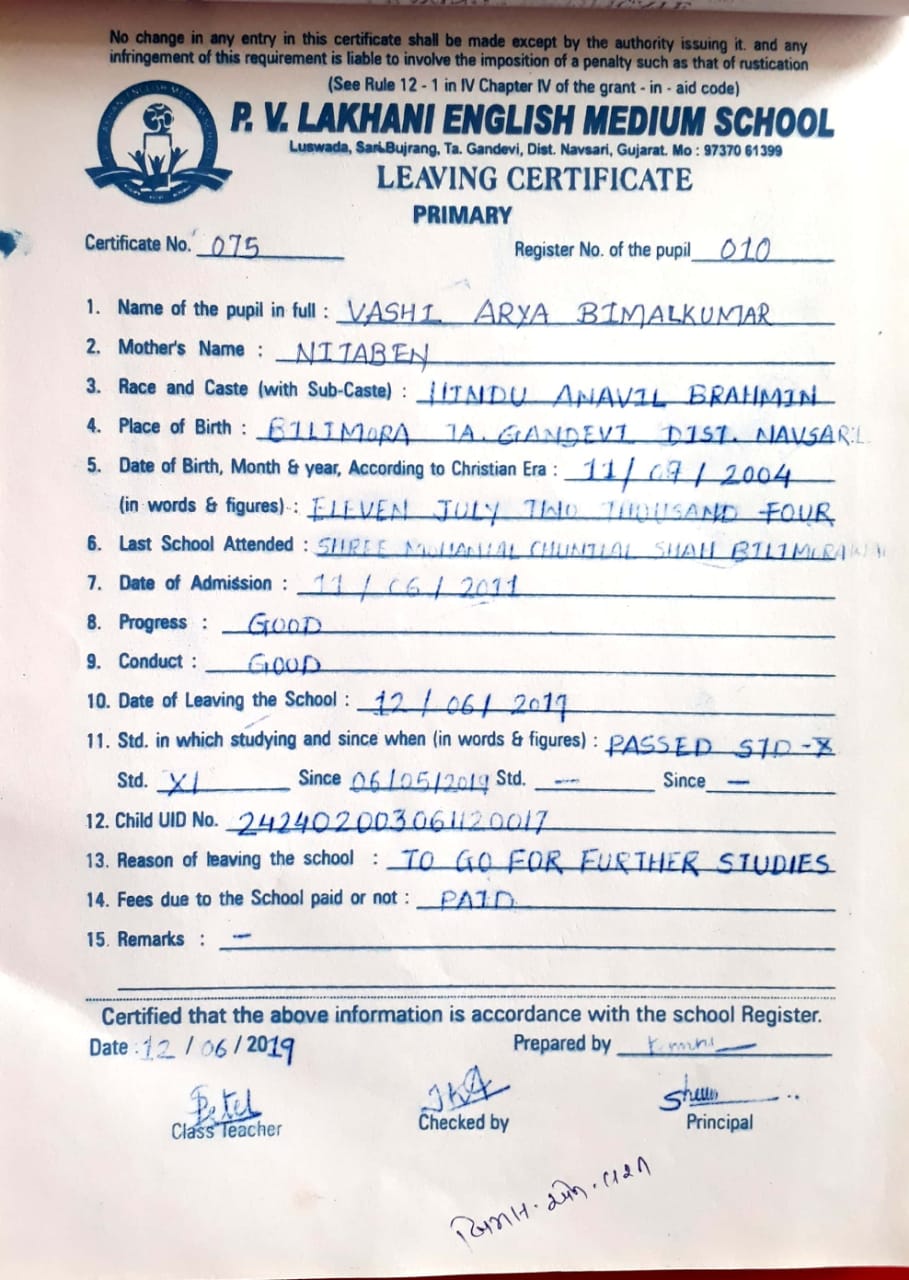 No change in any entry in this certificate shall be made except by the authority issuing it. and any
infringement of this requirement is liable to involve the imposition of a penalty such as that of rustication
(See Rule 12 - 1 in IV Chapter IV of the grant - in - aid code)
P. V. LAKHANI ENGLISH MEDIUM SCHOOL
Luswada, Sari-Bujrang, Ta. Gandevi, Dist. Navsari, Gujarat. Mo : 97370 61399
LEAVING CERTIFICATE
PRIMARY
Certificate No. 075 Register No. of the pupil 010
1. Name of the pupil in full : VASHI ARYA BIMALKUMAR
2. Mother's Name : NITABEN
3. Race and Caste (with Sub-Caste) : HINDU ANAVIL BRAHMIN
4. Place of Birth : BILIMORA TA. GANDEVI DIST. NAVSARI.
5. Date of Birth, Month & year, According to Christian Era : 11/07/2004
(in words & figures) : ELEVEN JULY TWO THOUSAND FOUR
6. Last School Attended : SHREE MOHANLAL CHUNILAL SHAH
7. Date of Admission : 11/06/2011
8. Progress : GOOD
9. Conduct : GOOD
10. Date of Leaving the School : 12/06/2019
11. Std. in which studying and since when (in words & figures) : PASSED STD-X
Std. XI Since 06/05/2019 Std. — Since —
12. Child UID No. 242402003061120017
13. Reason of leaving the school : TO GO FOR FURTHER STUDIES
14. Fees due to the School paid or not : PAID
15. Remarks : —
Certified that the above information is accordance with the school Register.
Date : 12/06/2019 Prepared by
Patel
Class Teacher Checked by Principal